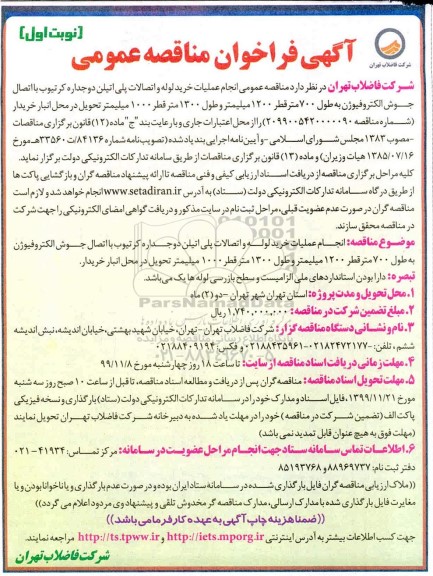 [نوبت اول]
آگهی فراخوان مناقصه عمومی
شرکت فاضلاب تهران
شرکت فاضلاب تهران در نظر دارد مناقصه عمومی انجام عملیات خرید لوله و اتصالات پلی اتیلن دوجداره کرتیوب با اتصال
جوش الکتروفیوژن به طول ۷۰۰ متر قطر ۱۲۰۰ میلیمتر و طول ۱۳۰۰ متر قطر ۱۰۰۰ میلیمتر تحویل در محل انبار خریدار
(شماره مناقصه ۲۰۹۹۰۰۵۴۲۰۰۰۰۰۹۰) را از محل اعتبارات جاری و با رعایت بند "ج" ماده (۱۲) قانون برگزاری مناقصات
-مصوب ۱۳۸۳ مجلس شورای اسلامی- و آیین نامه اجرایی بند یاد شده (تصویب نامه شماره ۸۴۱۳۶/ت۳۳۵۶۰هـ مورخ
۱۳۸۵/۰۷/۱۶ هیات وزیران) و ماده (۱۳) قانون برگزاری مناقصات از طریق سامانه تدارکات الکترونیکی دولت برگزار نماید.
کلیه مراحل برگزاری مناقصه از دریافت اسناد ارزیابی کیفی و فنی مناقصه تا ارائه پیشنهاد مناقصه گران و بازگشایی پاکت ها
از طریق درگاه سامانه تدارکات الکترونیکی دولت (ستاد) به آدرس www.setadiran.ir انجام خواهد شد و لازم است
مناقصه گران در صورت عدم عضویت قبلی، مراحل ثبت نام در سایت مذکور و دریافت گواهی امضای الکترونیکی را جهت شرکت
در مناقصه محقق سازند.
موضوع مناقصه: انجام عملیات خرید لوله و اتصالات پلی اتیلن دوجداره کرتیوب با اتصال جوش الکتروفیوژن
به طول ۷۰۰ متر قطر ۱۲۰۰ میلیمتر و طول ۱۳۰۰ متر قطر ۱۰۰۰ میلیمتر تحویل در محل انبار خریدار.
تبصره: دارا بودن استانداردهای ملی الزامیست و سطح بازرسی لوله ها یک می باشد.
۱. محل تحویل و مدت پروژه: استان تهران شهر تهران - دو (۲) ماه
۲. مبلغ تضمین شرکت در مناقصه: ۱,۷۴۰,۰۰۰,۰۰۰ ریال
۳. نام و نشانی دستگاه مناقصه گزار: شرکت فاضلاب تهران - تهران، خیابان شهید بهشتی، خیابان اندیشه، نبش اندیشه
ششم، تلفن: ۰۲۱۸۲۴۷۲۱۷۷-۰۲۱۸۸۴۳۵۹۶۱ و فکس ۰۲۱۸۸۴۰۱۹۲۴
۴. مهلت زمانی دریافت اسناد مناقصه از سایت: تا ساعت ۱۸ روز چهارشنبه مورخ ۹۹/۱۱/۸
۵. مهلت تحویل اسناد مناقصه: مناقصه گران پس از دریافت و مطالعه اسناد مناقصه، تا قبل از ساعت ۱۰ صبح روز سه شنبه
مورخ ۱۳۹۹/۱۱/۲۱، فایل اسناد و مدارک خود را در سامانه تدارکات الکترونیکی دولت (ستاد) بارگذاری و نسخه فیزیکی
پاکت الف (تضمین شرکت در مناقصه) خود را در مهلت یاد شده به دبیرخانه شرکت فاضلاب تهران تحویل نمایند
(مهلت فوق به هیچ عنوان قابل تمدید نمی باشد)
۶. اطلاعات تماس سامانه ستاد جهت انجام مراحل عضویت در سامانه: مرکز تماس: ۴۱۹۳۴-۰۲۱
دفتر ثبت نام: ۸۸۹۶۹۷۳۷ و ۸۵۱۹۳۷۶۸
((ملاک ارزیابی مناقصه گران فایل بارگذاری شده در سامانه ستاد ایران بوده و در صورت عدم بارگذاری و یا ناخوانا بودن و یا
مغایرت فایل بارگذاری شده با مدارک ارسالی، مدارک مناقصه گر مخدوش تلقی و پیشنهاد وی مردود اعلام می گردد))
((ضمنا هزینه چاپ آگهی به عهده کارفرما می باشد))
جهت کسب اطلاعات بیشتر به آدرس اینترنتی http://iets.mporg.ir و http://ts.tpww.ir مراجعه نمایند.
شرکت فاضلاب تهران